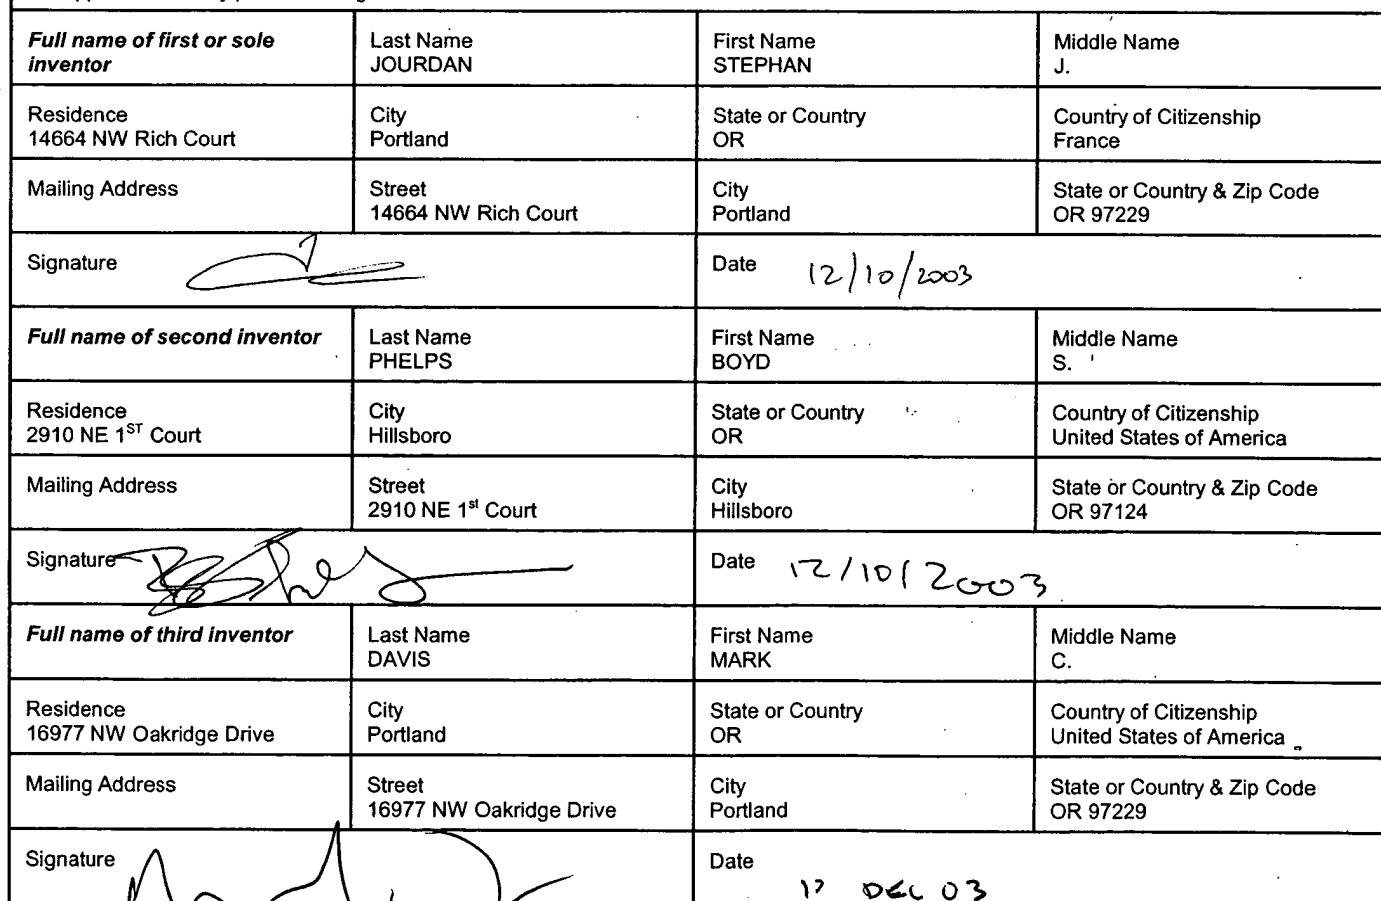 Full name of first or sole inventor
Last Name
JOURDAN
First Name
STEPHAN
Middle Name
J.
Residence
14664 NW Rich Court
City
Portland
State or Country
OR
Country of Citizenship
France
Mailing Address
Street
14664 NW Rich Court
City
Portland
State or Country & Zip Code
OR 97229
Signature
Date 12/10/2003
Full name of second inventor
Last Name
PHELPS
First Name
BOYD
Middle Name
S.
Residence
2910 NE 1ST Court
City
Hillsboro
State or Country
OR
Country of Citizenship
United States of America
Mailing Address
Street
2910 NE 1st Court
City
Hillsboro
State or Country & Zip Code
OR 97124
Signature
Date 12/10/2003
Full name of third inventor
Last Name
DAVIS
First Name
MARK
Middle Name
C.
Residence
16977 NW Oakridge Drive
City
Portland
State or Country
OR
Country of Citizenship
United States of America
Mailing Address
Street
16977 NW Oakridge Drive
City
Portland
State or Country & Zip Code
OR 97229
Signature
Date
DEC 03